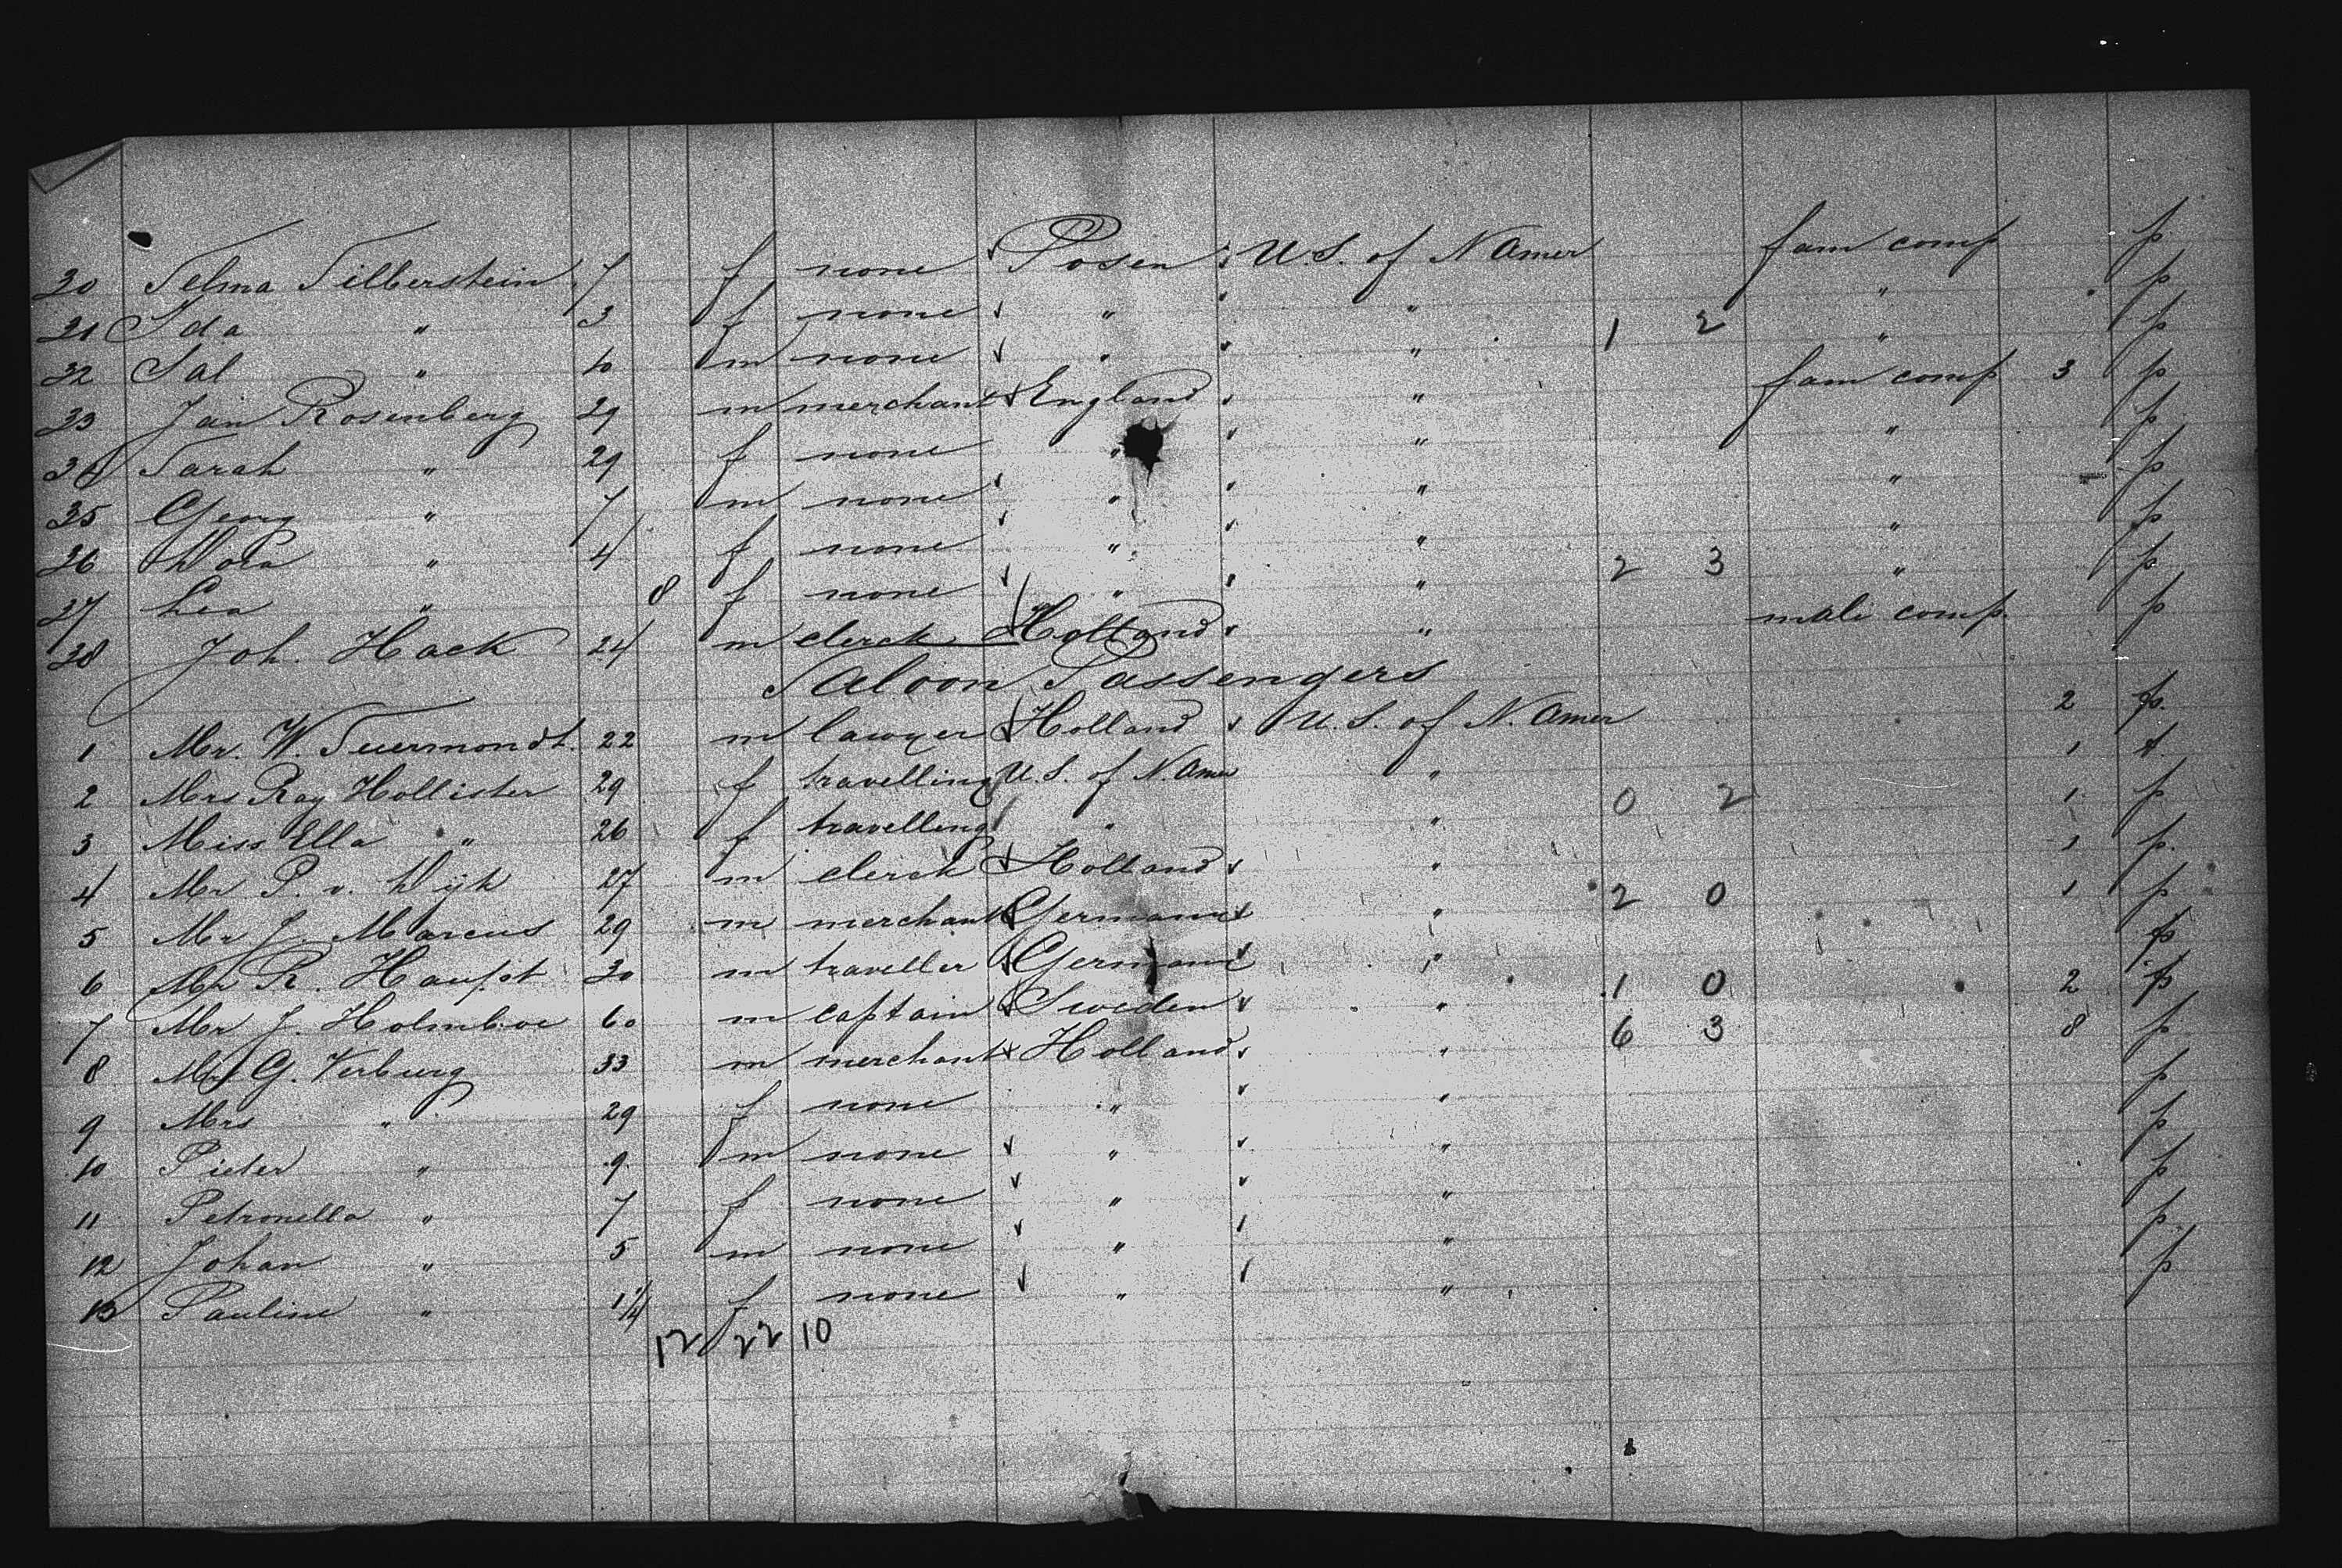 30 Selma Silberstein 7 f none Posen U.S. of N Amer fam comp p
31 Ida " 3 f none " " " p
32 Sal " 10 m none " " 1 2 " p
33 Jain Rosenberg 29 m merchant England " fam comp 3 p
34 Sarah " 29 f none " " " p
35 Georg " 7 m none " " " p
36 Dora " 4 f none " " " p
37 Lea " 8 f none " " 2 3 " p
38 Joh. Hack 24 m clerck Holland " male comp. p
Saloon Passengers
1 Mr. W. Suermondt. 22 m lawyer Holland U.S. of N. Amer 2 p.
2 Mrs Ray Hollister 29 f travelling U.S. of N. Amer " 1 t.
3 Miss Ella " 26 f travelling " " 0 2 1 p
4 Mr P. v. Dijk 27 m clerck Holland " 1 p.
5 Mr J. Marcus 29 m merchant Germany " 2 0 1 p
6 Mr R. Haupt 30 m traveller Germany " p
7 Mr J. Holmboe 60 m captain Sweden " 1 0 2 p
8 Mr G. Verburg 33 m merchant Holland " 6 3 8 p
9 Mrs " 29 f none " " p
10 Pieter " 9 m none " " p
11 Petronella " 7 f none " " p
12 Johan " 5 m none " " p
13 Pauline " 1 1/4 f none " " p
12 22 10